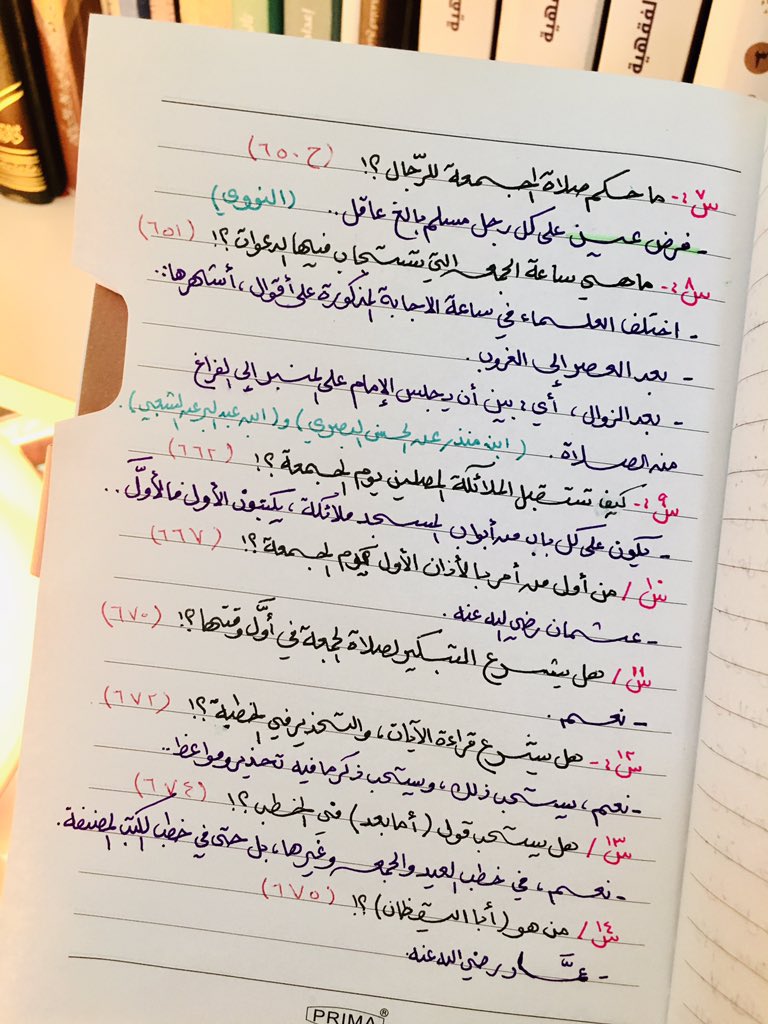 الفقهية
س٧:- ما حكم صلاة الجمعة للرّجال؟! (ح ٦٥٠)
- فرض عين على كل رجل مسلم بالغ عاقل.. (النووي)
س٨:- ما هي ساعة الجمعة التي تستجاب فيها الدعوات؟! (٦٥١)
- اختلف العلماء في ساعة الاجابة المذكورة على أقوال، أشهرها:..
- بعد العصر إلى الغروب.
- بعد الزوال، أي: بين أن يجلس الإمام على المنبر إلى الفراغ
من الصلاة. (ابن منذر عن الحسن البصري) و(ابن عبد البر عن الشعبي).
س٩:- كيف تستقبل الملائكة المصلين يوم الجمعة؟! (٦٦٢)
- يكون على كل باب من أبواب المسجد ملائكة، يكتبون الأول فالأوَّل..
س١٠/ من أول من أمر بالأذان الأول يوم الجمعة؟! (٦٦٧)
- عثمان رضي الله عنه.
س١١/ هل يشرع التبكير لصلاة الجمعة في أوَّل وقتها؟! (٦٧٠)
- نعم.
س١٢:- هل يشرع قراءة الآيات، والتحذير في الخطبة؟! (٦٧٢)
- نعم، يستحب ذلك، ويستحب ذكر ما فيه تحذير ومواعظ..
س١٣/ هل يستحب قول (أما بعد) في الخطب؟! (٦٧٤)
- نعم، في خطب العيد والجمعة وغَيرها، بل حتى في خطب الكتب المصنفة.
س١٤/ من هو (أبا اليقظان)؟! (٦٧٥)
- عمَّار رضي الله عنه.
PRIMA®